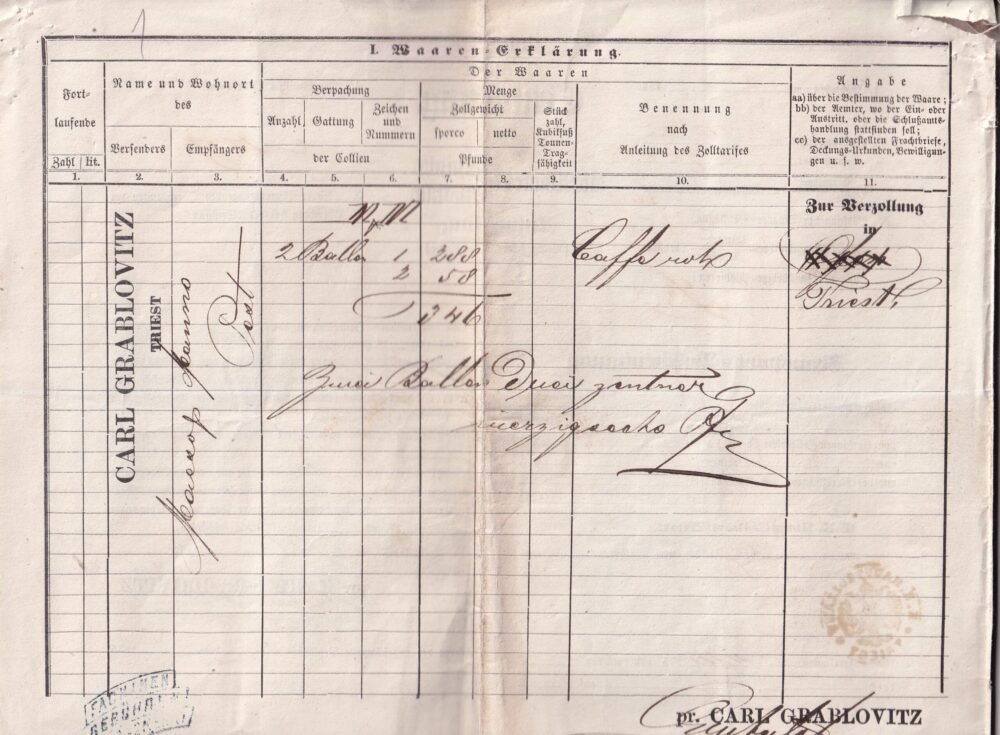 I. Waaren-Erklärung.
Der Waaren
Fort-
laufende
Zahl lit.
Name und Wohnort
des
Versenders
Empfängers
Verpachung
Anzahl, Gattung
Zeichen
und
Nummern
der Collien
Menge
Zollgewicht
sporco netto
Pfunde
Stück
zahl,
Kubikfuß
Tonnen-
Trag-
fähigkeit
Benennung
nach
Anleitung des Zolltarifes
Angabe
aa) über die Bestimmung der Waare;
bb) der Aemter, wo der Ein- oder
Austritt, oder die Schlußamts-
handlung stattfinden soll;
cc) der ausgestellten Frachtbriefe,
Deckungs-Urkunden, Bewilligun-
gen u. s. w.
1. 2. 3. 4. 5. 6. 7. 8. 9. 10. 11.
CARL GRABLOVITZ
TRIEST
Pest
2 Ballen 1 288
2 58
346
Caffe roh
Zur Verzollung
in
Triest
Zwei Ballen Drei zentner
vierzigsechs
pr. CARL GRABLOVITZ